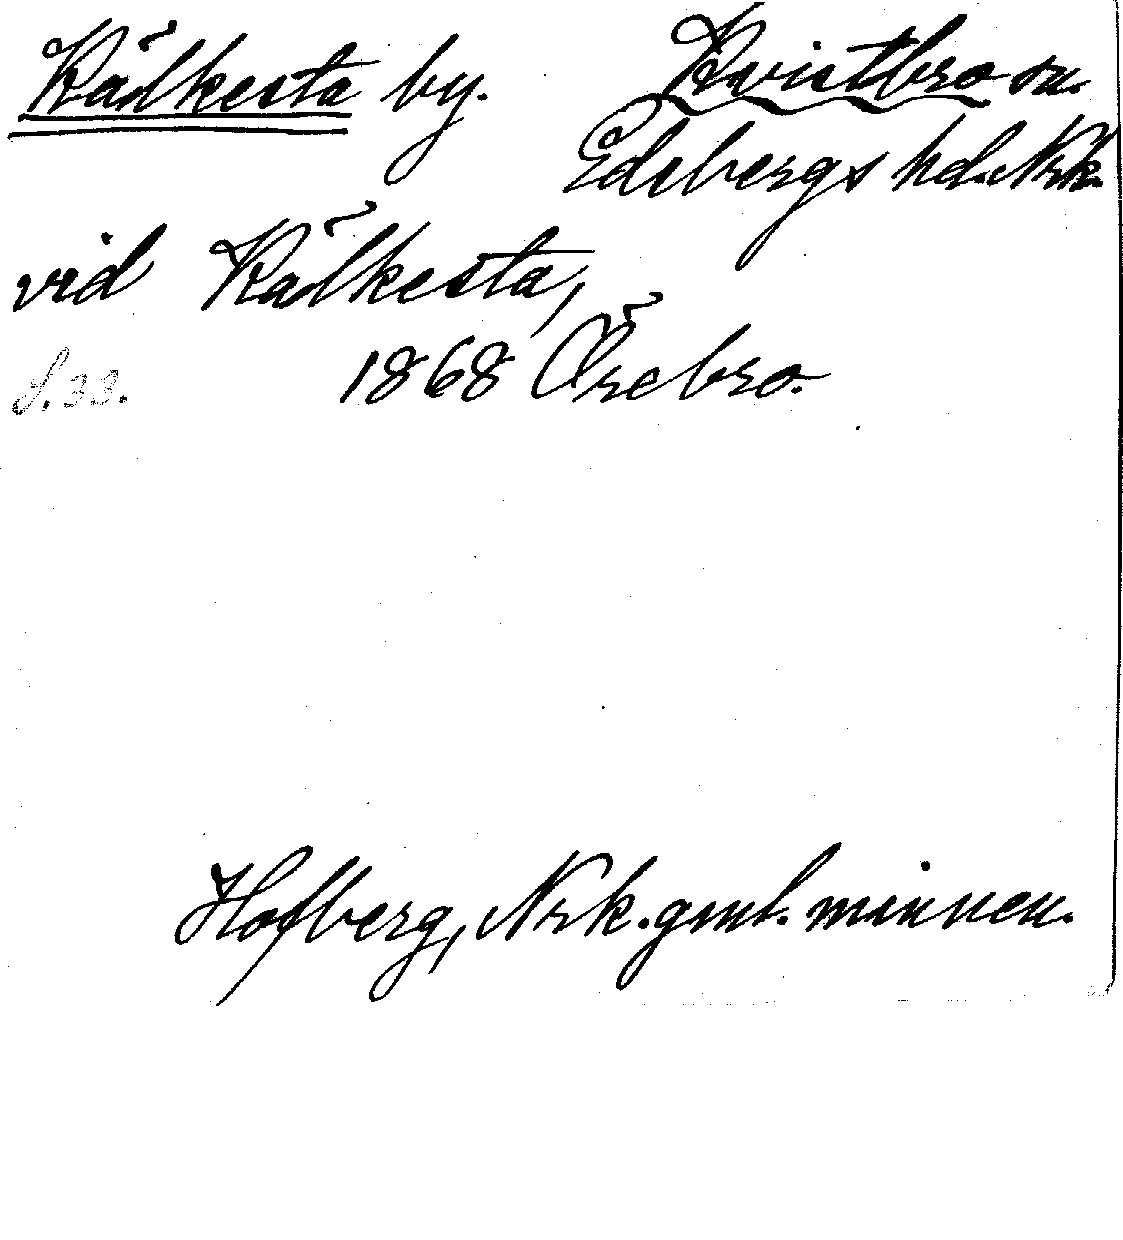 Kälkesta by. Kvistbro sn.
Edsbergs hd. Nrk.
vid Kälkesta,
S. 33. 1868 Örebro.
Hofberg, Nrk. gml. minnen.